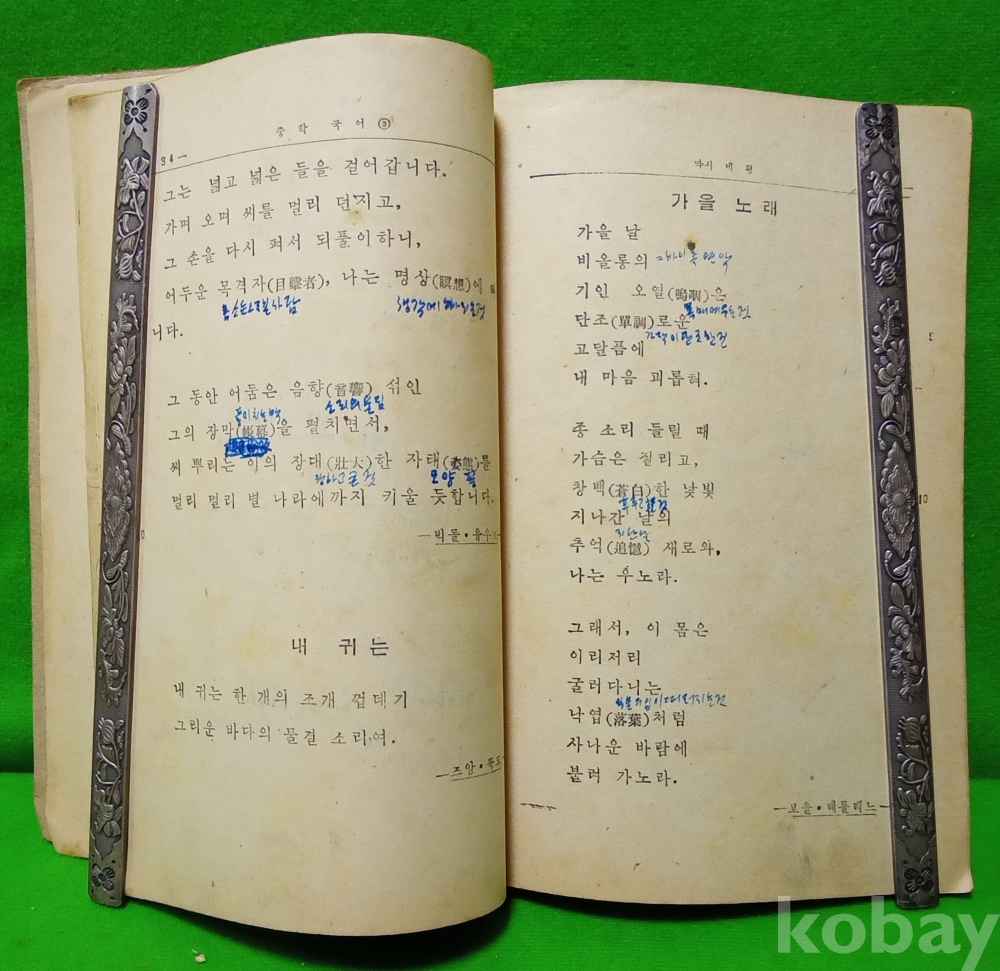 중 학 국 어 ③
34—
그는 넓고 넓은 들을 걸어갑니다.
가며 오며 씨를 멀리 던지고,
그 손을 다시 펴서 되풀이하니,
어두운 목격자(目擊者), 나는 명상(瞑想)에
니다.
그 동안 어둠은 음향(音響) 섞인
소리의 울림
그의 장막(帳幕)을 펼치면서,
씨 뿌리는 이의 장대(壯大)한 자태(姿態)를
장하고 큰 것
멀리 멀리 별 나라에까지 키울 듯합니다.
—빅돌·유우
내 귀는
내 귀는 한 개의 조개 껍데기
그리운 바다의 물결 소리여.
—즈앙·
역시 네 편
가을 노래
가을 날
비올롱의
기인 오열(嗚咽)은
단조(單調)로운
고달픔에
내 마음 괴롭혀.
종 소리 들릴 때
가슴은 질리고,
창백(蒼白)한 낯빛
지나간 날의
지난날
추억(追憶) 새로와,
나는 우노라.
그래서, 이 몸은
이리저리
굴러다니는
낙엽(落葉)처럼
사나운 바람에
불려 가노라.
—보올·베를레느—
10
kobay